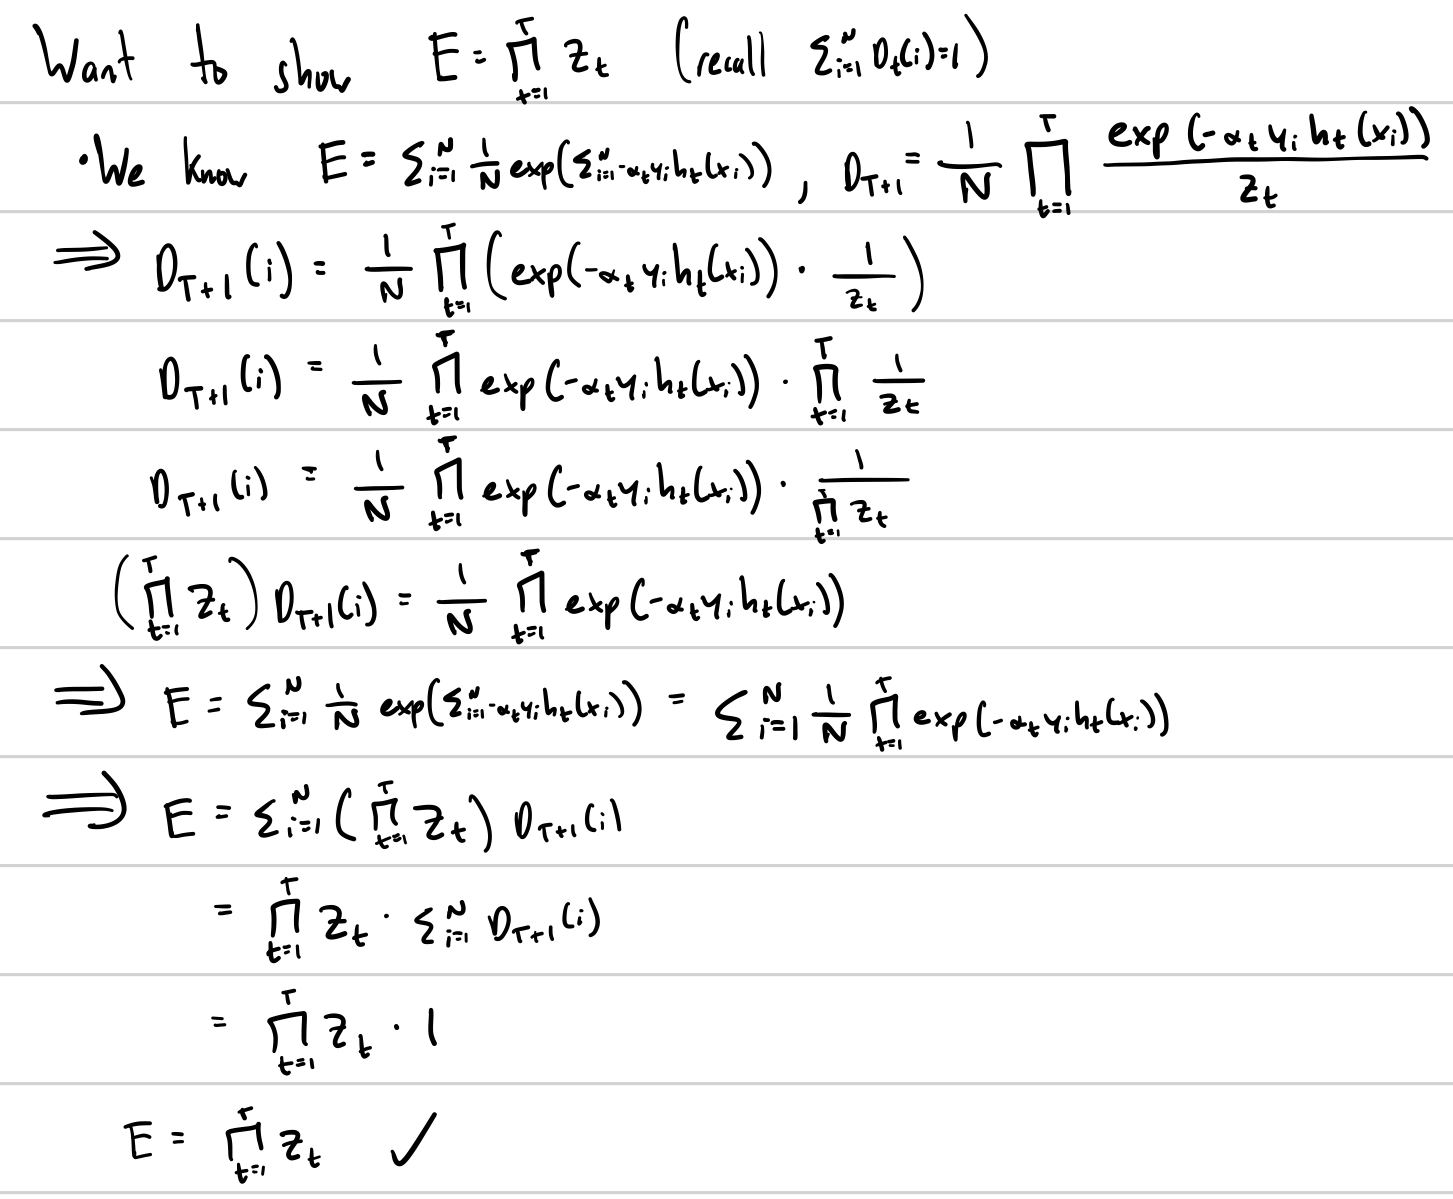 Want to show E = ∏_{t=1}^{T} Z_t (recall Σ_{i=1}^{N} D_t(i)=1)
· We know E = Σ_{i=1}^{N} 1/N exp(Σ_{i=1}^{N} -α_t y_i h_t(x_i)) , D_{T+1} = 1/N ∏_{t=1}^{T} exp(-α_t y_i h_t(x_i))/Z_t
⇒ D_{T+1}(i) = 1/N ∏_{t=1}^{T} (exp(-α_t y_i h_t(x_i)) · 1/Z_t)
D_{T+1}(i) = 1/N ∏_{t=1}^{T} exp(-α_t y_i h_t(x_i)) · ∏_{t=1}^{T} 1/Z_t
D_{T+1}(i) = 1/N ∏_{t=1}^{T} exp(-α_t y_i h_t(x_i)) · 1/∏_{t=1}^{T} Z_t
(∏_{t=1}^{T} Z_t) D_{T+1}(i) = 1/N ∏_{t=1}^{T} exp(-α_t y_i h_t(x_i))
⇒ E = Σ_{i=1}^{N} 1/N exp(Σ_{i=1}^{N} -α_t y_i h_t(x_i)) = Σ_{i=1}^{N} 1/N ∏_{t=1}^{T} exp(-α_t y_i h_t(x_i))
⇒ E = Σ_{i=1}^{N} (∏_{t=1}^{T} Z_t) D_{T+1}(i)
= ∏_{t=1}^{T} Z_t · Σ_{i=1}^{N} D_{T+1}(i)
= ∏_{t=1}^{T} Z_t · 1
E = ∏_{t=1}^{T} Z_t ✓